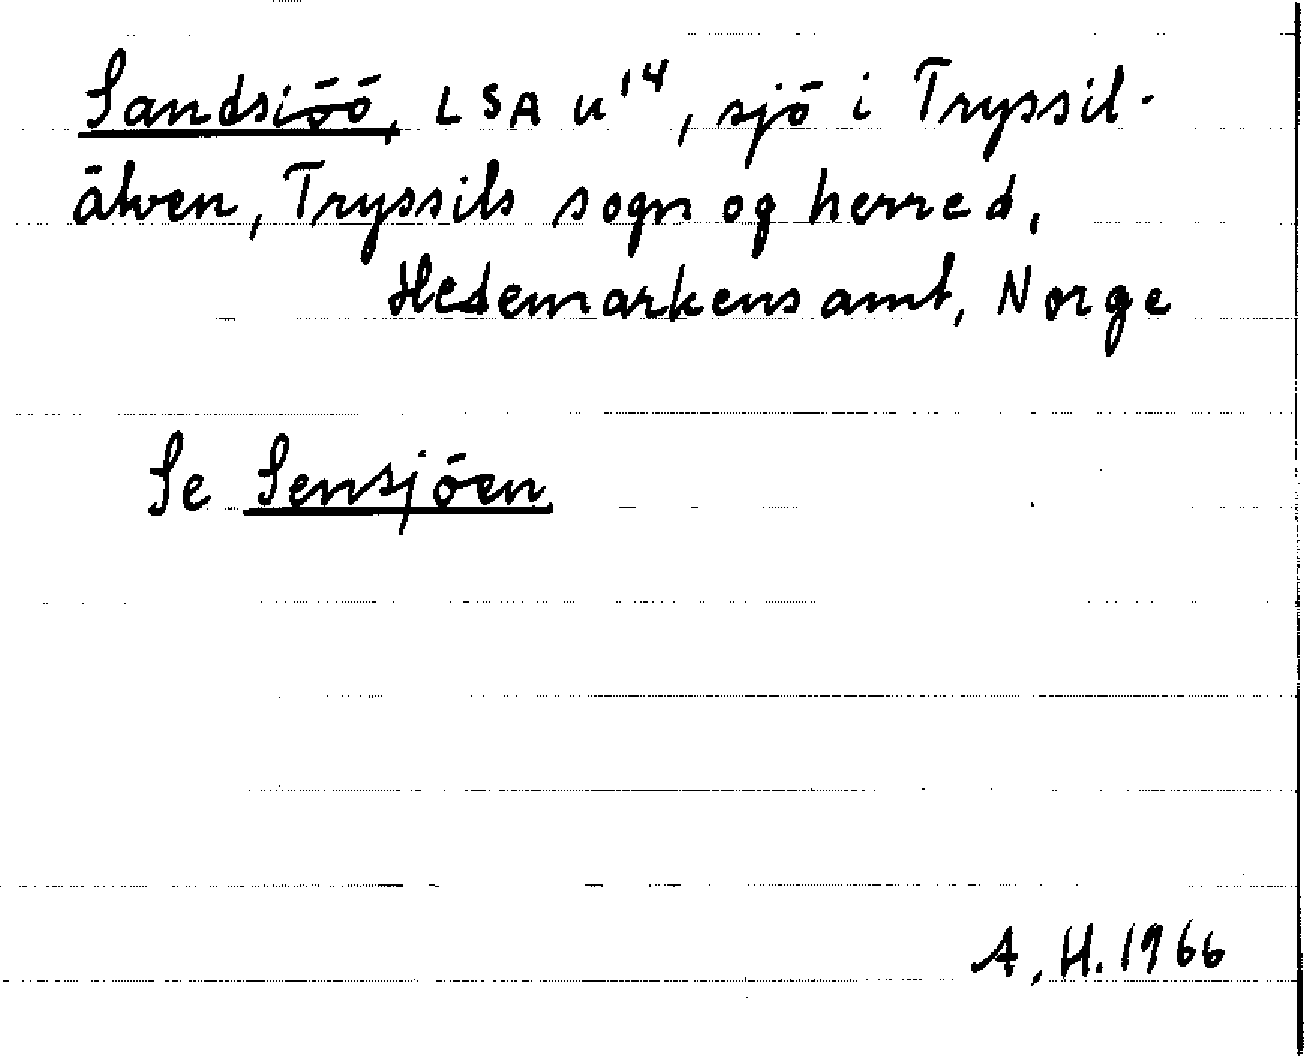 Sandsiöö, LSA u¹⁴, sjö i Tryssil-
älven, Tryssils sogn og herred,
Hedemarkens amt, Norge
Se Sensjöen
A.H. 1966